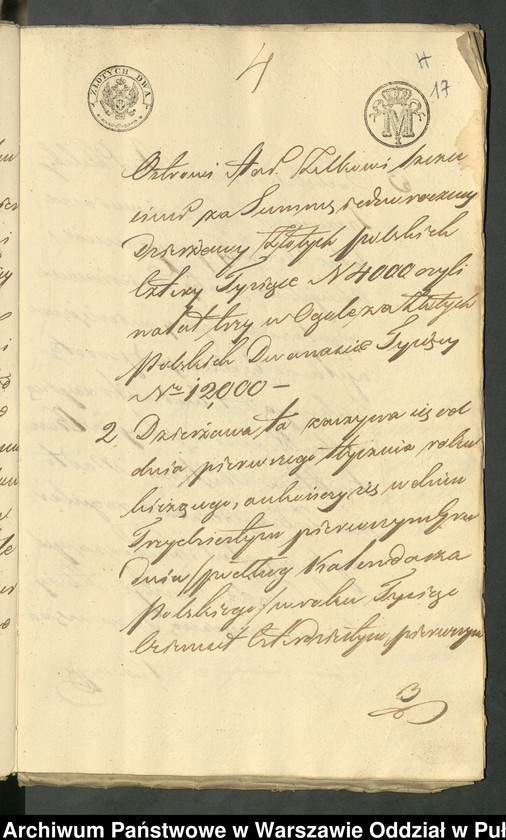 4
H
17
ZŁOTYCH DWA
M
za Summę jednoroczną
Dzierżawy Złotych polskich
Cztery Tysiące N 4000 czyli
na lat trzy w Ogóle za Złotych
Polskich Dwanaście Tysięcy
No 12,000 —
2 Dzierżawa ta zaczyna się od
dnia pierwszego stycznia roku
bieżącego, a ukończy się w dniu
Trzydziestym pierwszym Gru
dnia /:według Kalendarza
Polskiego:/ w roku Tysiąc
Ośmset Czterdziestym, pierwszym
3
Archiwum Państwowe w Warszawie Oddział w Puł